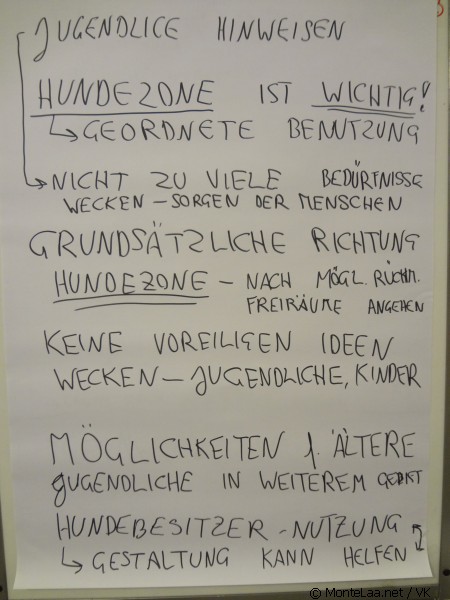 JUGENDLICE HINWEISEN
HUNDEZONE IST WICHTIG!
↳ GEORDNETE BENUTZUNG
→ NICHT ZU VIELE BEDÜRTNISSE
WECKEN – SORGEN DER MENSCHEN
GRUNDSÄTZLICHE RICHTUNG
HUNDEZONE – NACH MÖGL.
FREIRÄUME ANGEHEN
KEINE VOREILIGEN IDEEN
WECKEN – JUGENDLICHE, KINDER
MÖGLICHKEITEN f. ÄLTERE
JUGENDLICHE IN WEITEREM
HUNDEBESITZER – NUTZUNG
↳ GESTALTUNG KANN HELFEN
© MonteLaa.net / VK